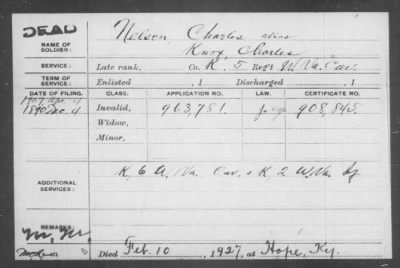 DEAD
NAME OF SOLDIER:
Nelson, Charles alias
Knox, Charles
SERVICE:
Late rank, Co. K. 5 Reg't W. Va. Cav.
TERM OF SERVICE:
Enlisted , 1 Discharged , 1
DATE OF FILING. CLASS. APPLICATION NO. LAW. CERTIFICATE NO.
1907 Apr. 11
1890 Dec. 4 Invalid, 963,781. 908,845.
Widow,
Minor,
ADDITIONAL SERVICES:
K, 6 W. Va. Cav. & K, 2 W. Va. Inf
REMARKS:
Died Feb. 10, 1927, at Hope, Ky.